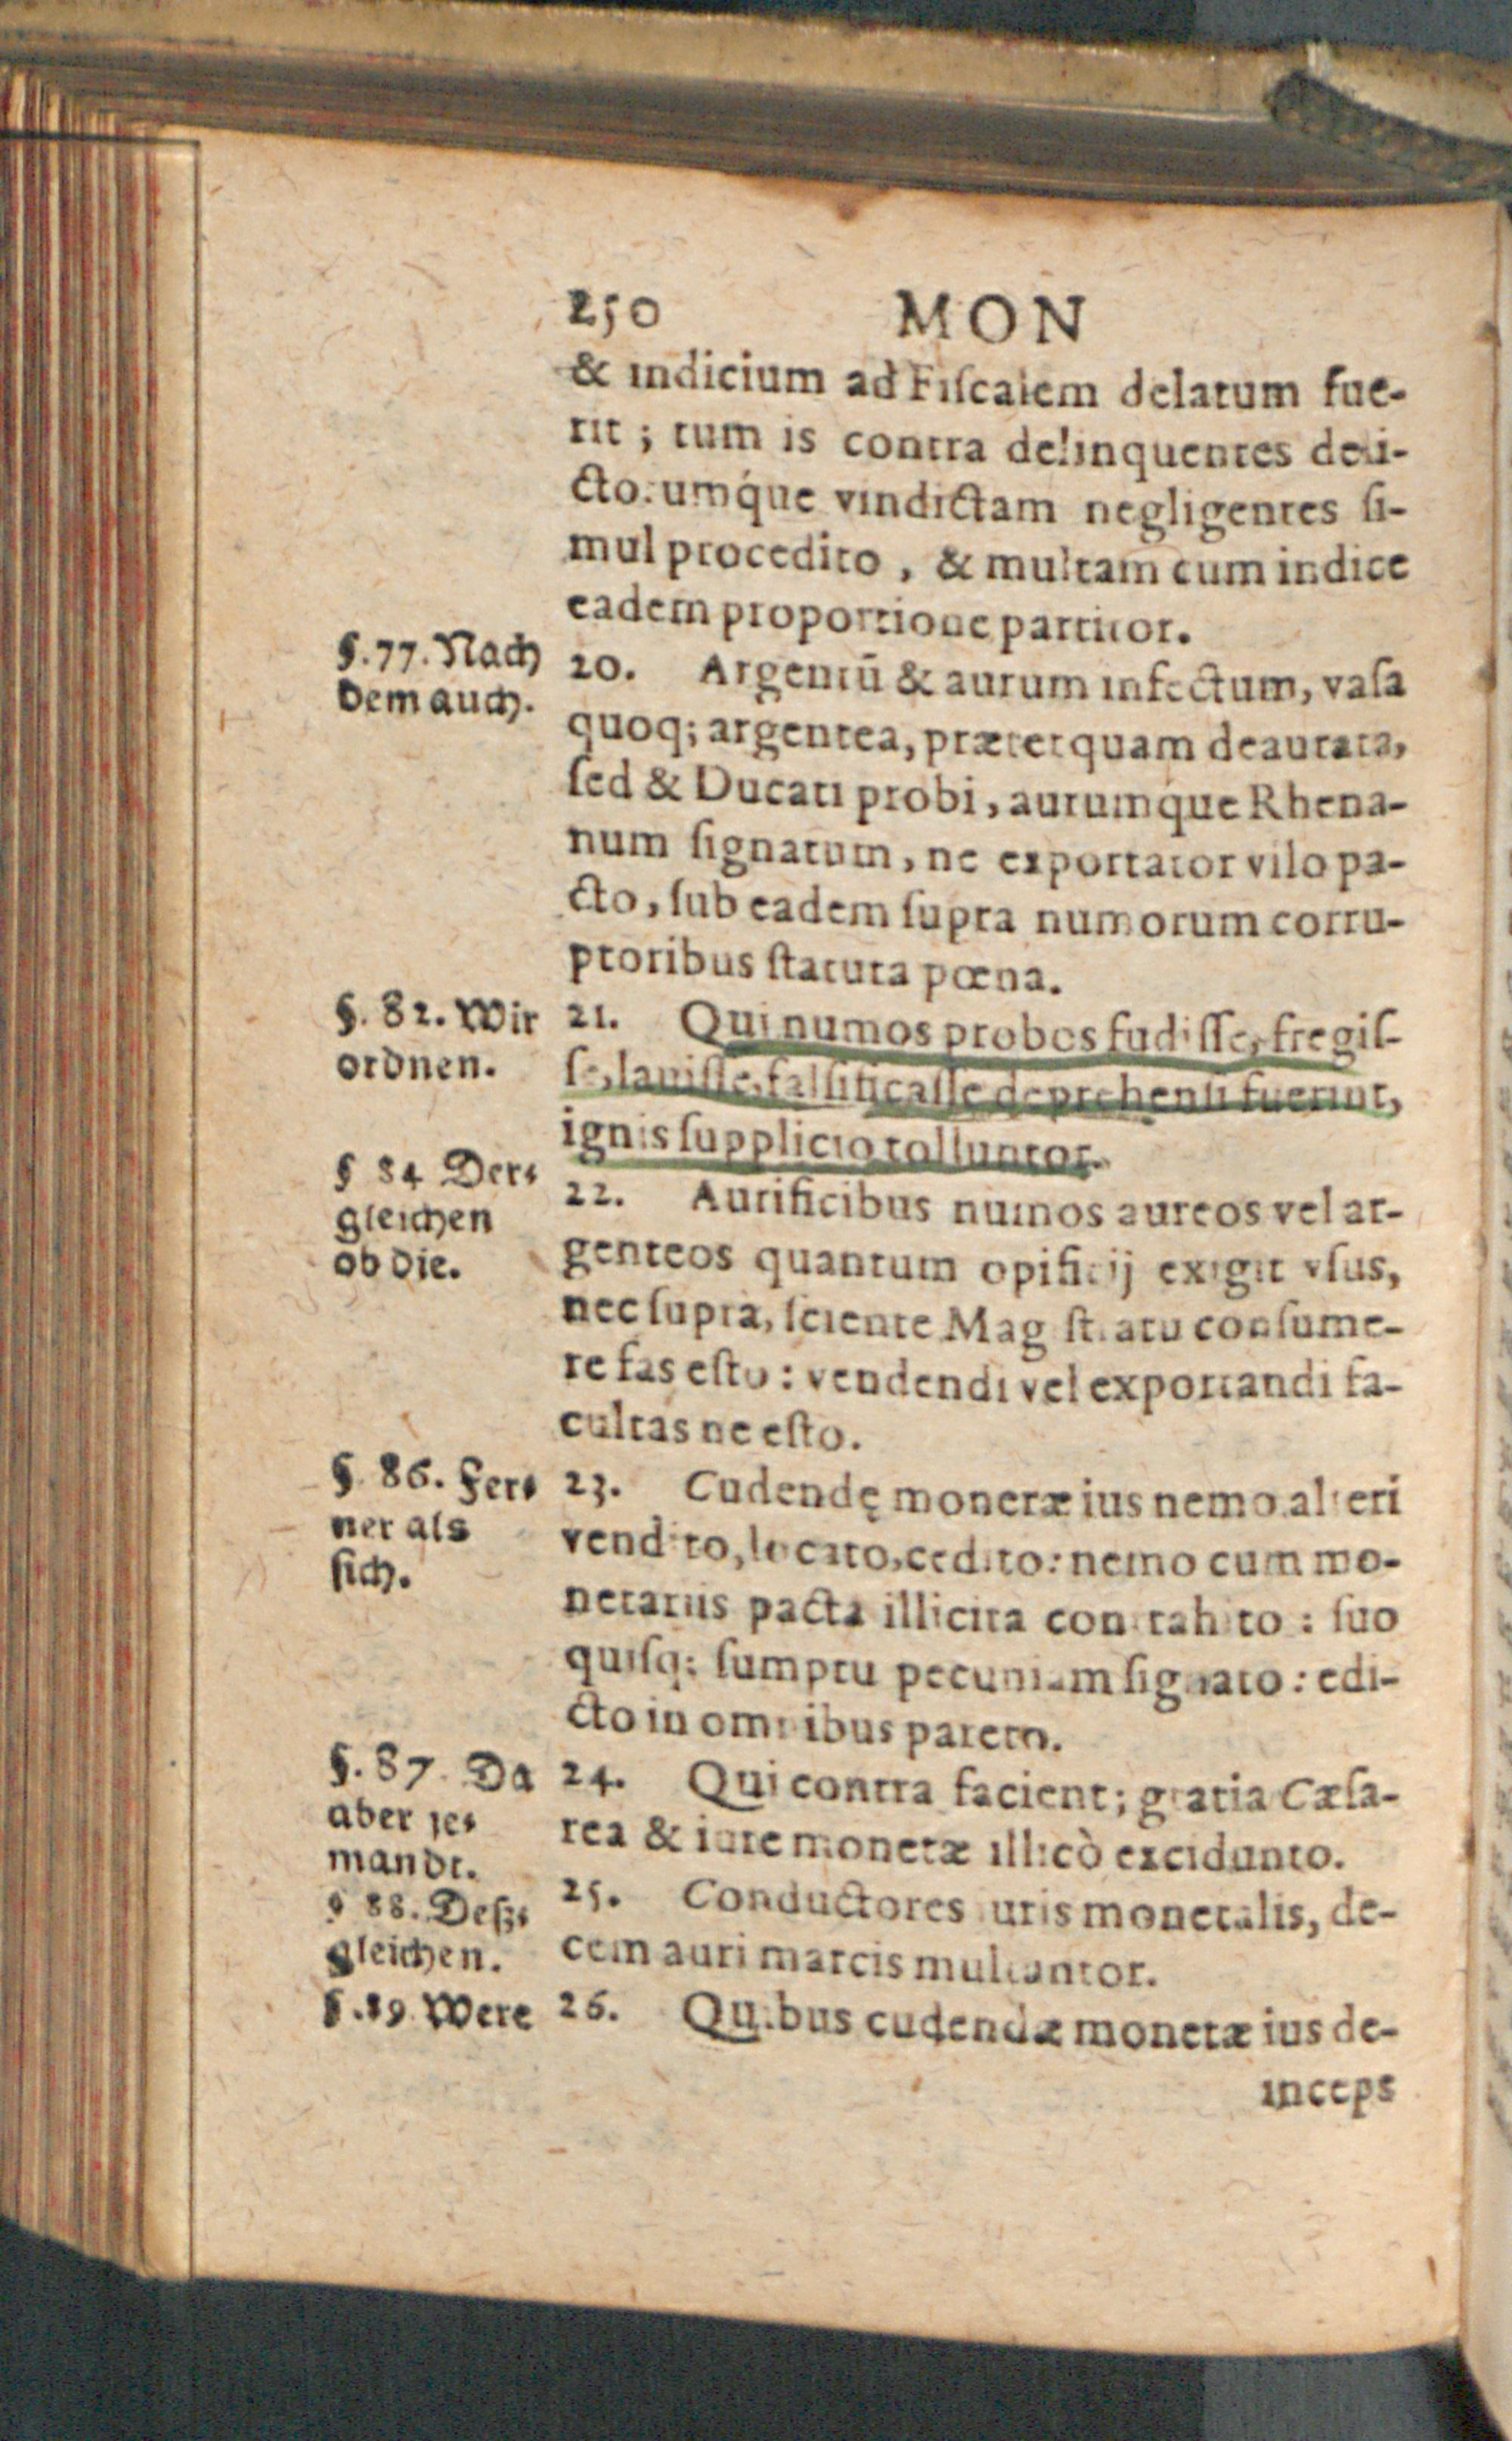 250 MON
& indicium ad Fiſcalem delatum fue-
rit ; tum is contra delinquentes deli-
ctorumq́ue vindictam negligentes ſi-
mul procedito , & multam cum indice
eadem proportione partitor.
§. 77. Nach
dem auch.
20. Argentū & aurum infectum, vaſa
quoq; argentea, præterquam deaurata,
ſed & Ducati probi, aurumq́ue Rhena-
num ſignatum, ne exportator vllo pa-
cto, ſub eadem ſupra numorum corru-
ptoribus ſtatuta pœna.
§. 82. Wir
ordnen.
21. Qui numos probos fudiſſe, fregiſ-
ſe, lauiſſe, falſificaſſe deprehenſi fuerint,
ignis ſupplicio tolluntor.
§ 84 Der⸗
gleichen
ob die.
22. Aurificibus numos aureos vel ar-
genteos quantum opificij exigit vſus,
nec ſupra, ſciente Magiſtratu conſume-
re fas eſto : vendendi vel exportandi fa-
cultas ne eſto.
§. 86. Fer⸗
ner als
ſich.
23. Cudendę monetæ ius nemo alteri
vendito, locato, cedito: nemo cum mo-
netariis pacta illicita contrahito : ſuo
quiſq; ſumptu pecuniam ſignato : edi-
cto in omnibus pareto.
§. 87. Da
aber je⸗
mandt.
24. Qui contra facient; gratia Cæſa-
rea & iure monetæ illicò excidunto.
§ 88. Deſz⸗
gleichen.
25. Conductores iuris monetalis, de-
cem auri marcis multantor.
§. 89 Were
26. Quibus cudendæ monetæ ius de-
inceps